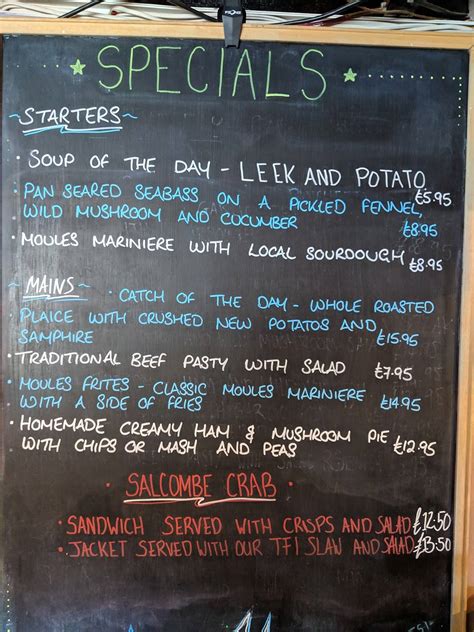 SPECIALS
STARTERS
SOUP OF THE DAY - LEEK AND POTATO
£5.95
PAN SEARED SEABASS ON A PICKLED FENNEL,
WILD MUSHROOM AND CUCUMBER £8.95
MOULES MARINIERE WITH LOCAL SOURDOUGH £8.95
MAINS
CATCH OF THE DAY - WHOLE ROASTED
PLAICE WITH CRUSHED NEW POTATOS AND
SAMPHIRE £15.95
TRADITIONAL BEEF PASTY WITH SALAD £7.95
MOULES FRITES - CLASSIC MOULES MARINIERE
WITH A SIDE OF FRIES £14.95
HOMEMADE CREAMY HAM & MUSHROOM PIE
WITH CHIPS OR MASH AND PEAS £12.95
SALCOMBE CRAB
SANDWICH SERVED WITH CRISPS AND SALAD £12.50
JACKET SERVED WITH OUR TFI SLAW AND SALAD £13.50